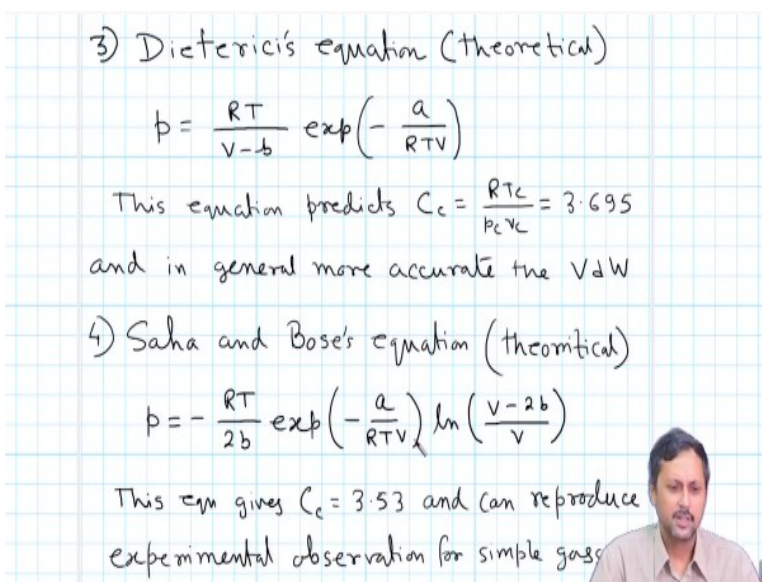 3) Dieterici's equation (theoretical)
p = RT/(V-b) exp(- a/(RTV))
This equation predicts Cc = RTc/(pcVc) = 3.695
and in general more accurate the VdW
4) Saha and Bose's equation (theoritical)
p = - RT/(2b) exp(- a/(RTV)) ln((V-2b)/V)
This eqn gives Cc = 3.53 and can reproduce
experimental observation for simple gas